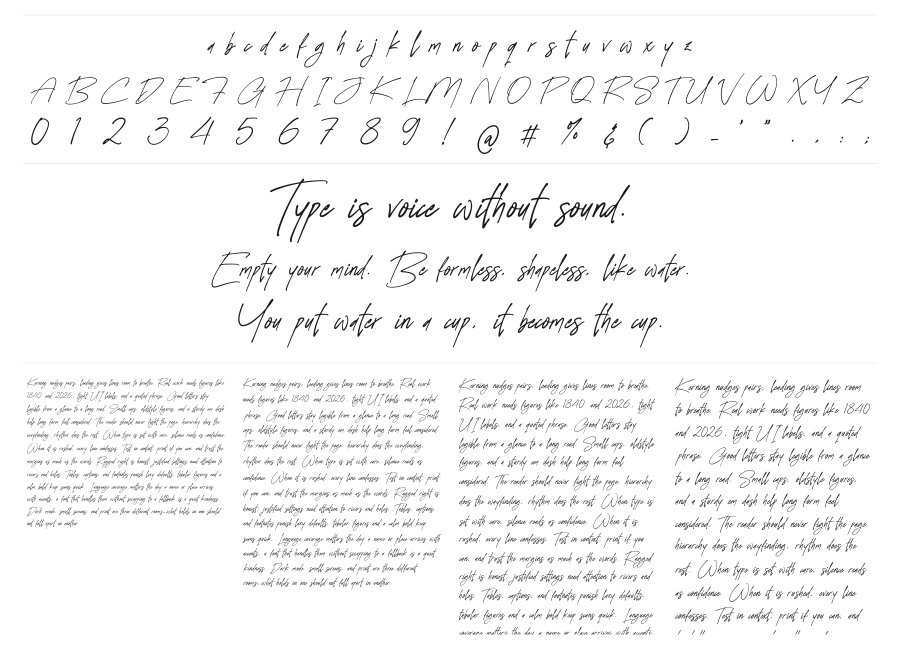 a b c d e f g h i j k l m n o p q r s t u v w x y z
A B C D E F G H I J K L M N O P Q R S T U V W X Y Z
0 1 2 3 4 5 6 7 8 9 ! @ # % & ( ) - ' " . , : ;
Type is voice without sound.
Empty your mind. Be formless, shapeless, like water.
You put water in a cup, it becomes the cup.
Kerning nudges pairs, leading gives lines room to breathe. Real work needs figures like
1840 and 2026, tight UI labels, and a quoted phrase. Good letters stay
legible from a glance to a long read. Small caps, oldstyle figures, and a sturdy em dash
help long form feel considered. The reader should never fight the page, hierarchy does the
wayfinding, rhythm does the rest. When type is set with care, silence reads as confidence.
When it is rushed, every line confesses. Test in context, print if you can, and trust the
margins as much as the words. Ragged right is honest, justified settings need attention to
rivers and holes. Tables, captions, and footnotes punish lazy defaults, tabular figures and a
calm bold keep sums quick. Language coverage matters the day a name or place arrives
with accents, a font that handles them without swapping to a fallback is a quiet kindness.
Dark mode, small screens, and print are three different rooms—what holds in one should
not fall apart in another.
Kerning nudges pairs, leading gives lines room to breathe. Real work
needs figures like 1840 and 2026, tight UI labels, and a quoted
phrase. Good letters stay legible from a glance to a long read. Small
caps, oldstyle figures, and a sturdy em dash help long form feel considered.
The reader should never fight the page, hierarchy does the wayfinding,
rhythm does the rest. When type is set with care, silence reads as
confidence. When it is rushed, every line confesses. Test in context, print
if you can, and trust the margins as much as the words. Ragged right is
honest, justified settings need attention to rivers and holes. Tables, captions,
and footnotes punish lazy defaults, tabular figures and a calm bold keep
sums quick. Language coverage matters the day a name or place arrives with
accents, a font that handles them without swapping to a fallback is a quiet
kindness. Dark mode, small screens, and print are three different
rooms—what holds in one should not fall apart in another.
Kerning nudges pairs, leading gives lines room to breathe.
Real work needs figures like 1840 and 2026, tight
UI labels, and a quoted phrase. Good letters stay
legible from a glance to a long read. Small caps, oldstyle
figures, and a sturdy em dash help long form feel
considered. The reader should never fight the page, hierarchy
does the wayfinding, rhythm does the rest. When type is
set with care, silence reads as confidence. When it is
rushed, every line confesses. Test in context, print if you
can, and trust the margins as much as the words. Ragged
right is honest, justified settings need attention to rivers and
holes. Tables, captions, and footnotes punish lazy defaults,
tabular figures and a calm bold keep sums quick. Language
coverage matters the day a name or place arrives with accents,
Kerning nudges pairs, leading gives lines room
to breathe. Real work needs figures like 1840
and 2026, tight UI labels, and a quoted
phrase. Good letters stay legible from a glance
to a long read. Small caps, oldstyle figures,
and a sturdy em dash help long form feel
considered. The reader should never fight the page,
hierarchy does the wayfinding, rhythm does the
rest. When type is set with care, silence reads
as confidence. When it is rushed, every line
confesses. Test in context, print if you can, and